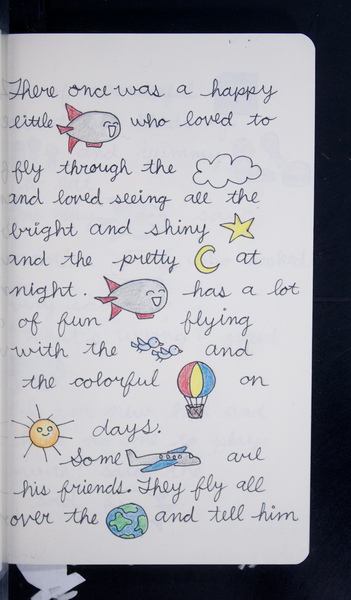 There once was a happy
little who loved to
fly through the
and loved seeing all the
bright and shiny
and the pretty at
night. has a lot
of fun flying
with the and
the colorful on
days.
Some are
his friends. They fly all
over the and tell him